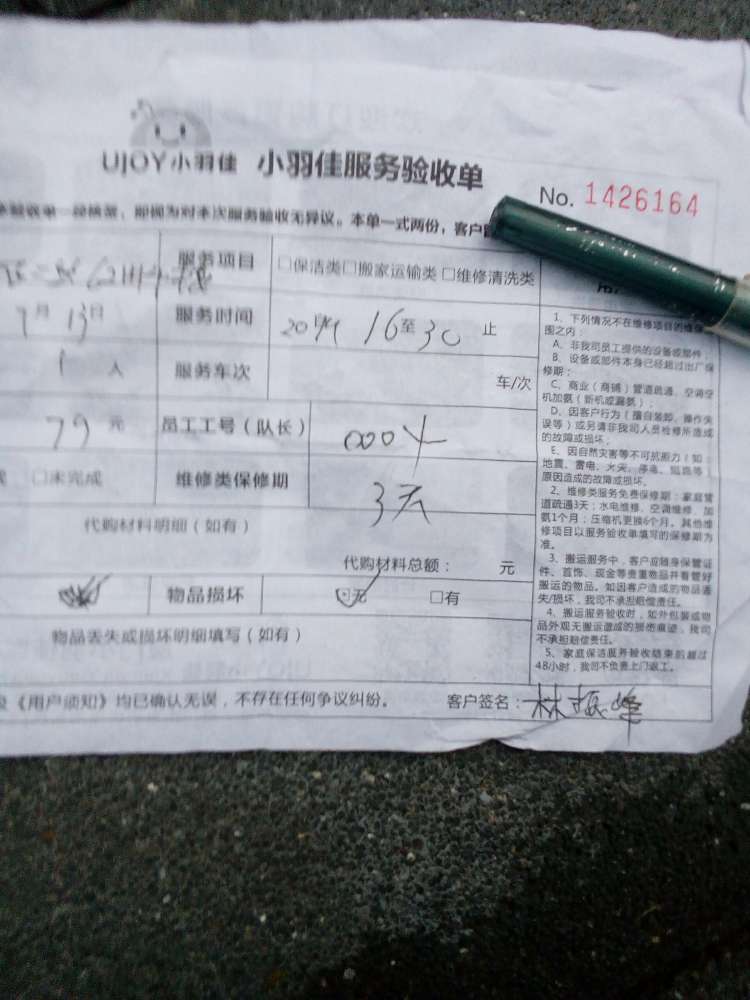 UJOY小羽佳 小羽佳服务验收单
No. 1426164
即视为对本次服务验收无异议。本单一式两份，客户
服务项目 □保洁类□搬家运输类 □维修清洗类
7月13日 服务时间 16至30 止
1 人 服务车次 车/次
79 元 员工工号（队长）
□未完成 维修类保修期 3天
代购材料明细（如有）
代购材料总额： 元
物品损坏 ☑无 □有
物品丢失或损坏明细填写（如有）
《用户须知》均已确认无误，不存在任何争议纠纷。 客户签名：林振峰
1、下列情况不在维修项目的维保
围之内：
A、非我司员工提供的设备或部件；
B、设备或部件本身已经超过出厂保
修期；
C、商业（商铺）管道疏通、空调空
机加氨（新机或漏氨）；
D、因客户行为（擅自装卸、操作失
误等）或另请非我司人员检修所造成
的故障或损坏；
E、因自然灾害等不可抗拒力（如：
地震、雷电、火灾、停电、短路等）
原因造成的故障或损坏。
2、维修类服务免费保修期：家庭管
道疏通3天；水电维修、空调维修、加
氨1个月；压缩机更换6个月。其他维
修项目以服务验收单填写的保修期为
准。
3、搬运服务中，客户应随身保管证
件、首饰、现金等贵重物品并看管好
搬运的物品。如因客户造成的物品丢
失/损坏，我司不承担赔偿责任。
4、搬运服务验收时，如外包装或物
品外观无搬运造成的损伤痕迹，我司
不承担赔偿责任。
5、家庭保洁服务验收结束后超过
48小时，我司不负责上门返工。